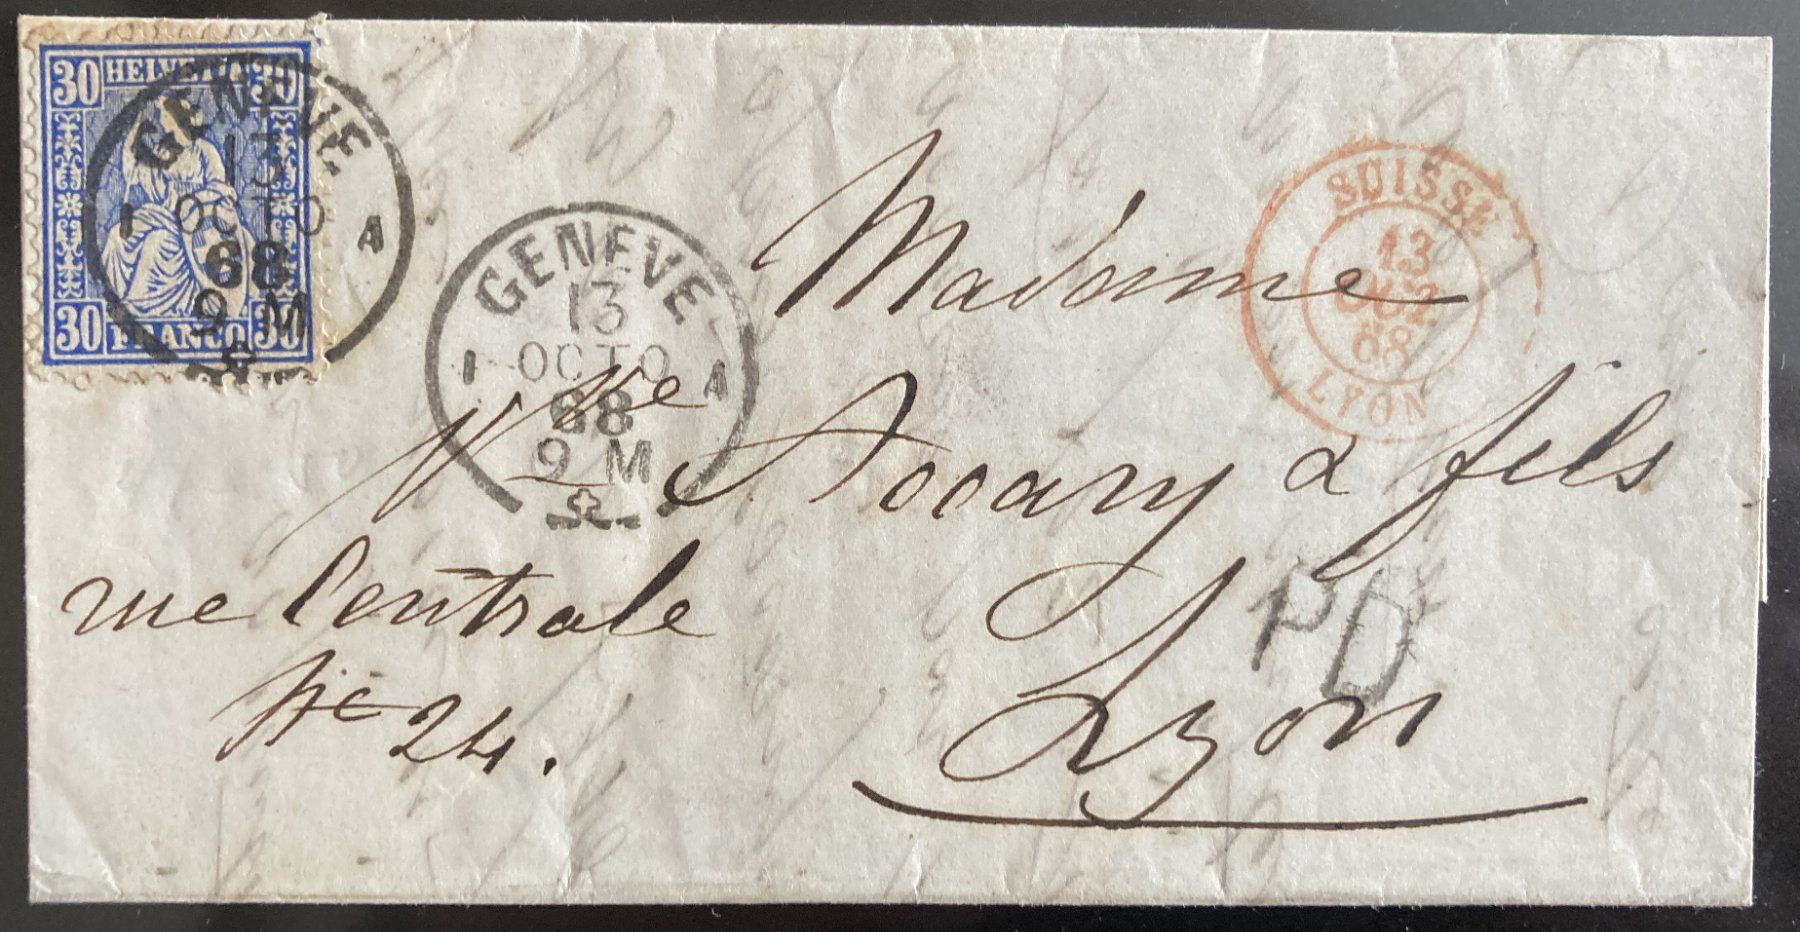 30 HELVETIA 30
30 FRANCO 30
GENEVE
13
OCTO
1 A
68
9 M
GENEVE
13
OCTO
1 A
68
9 M
SUISSE
13
OCT
68
LYON
Madame
Vve Accary & fils
rue Centrale
No 24.
Lyon
PD